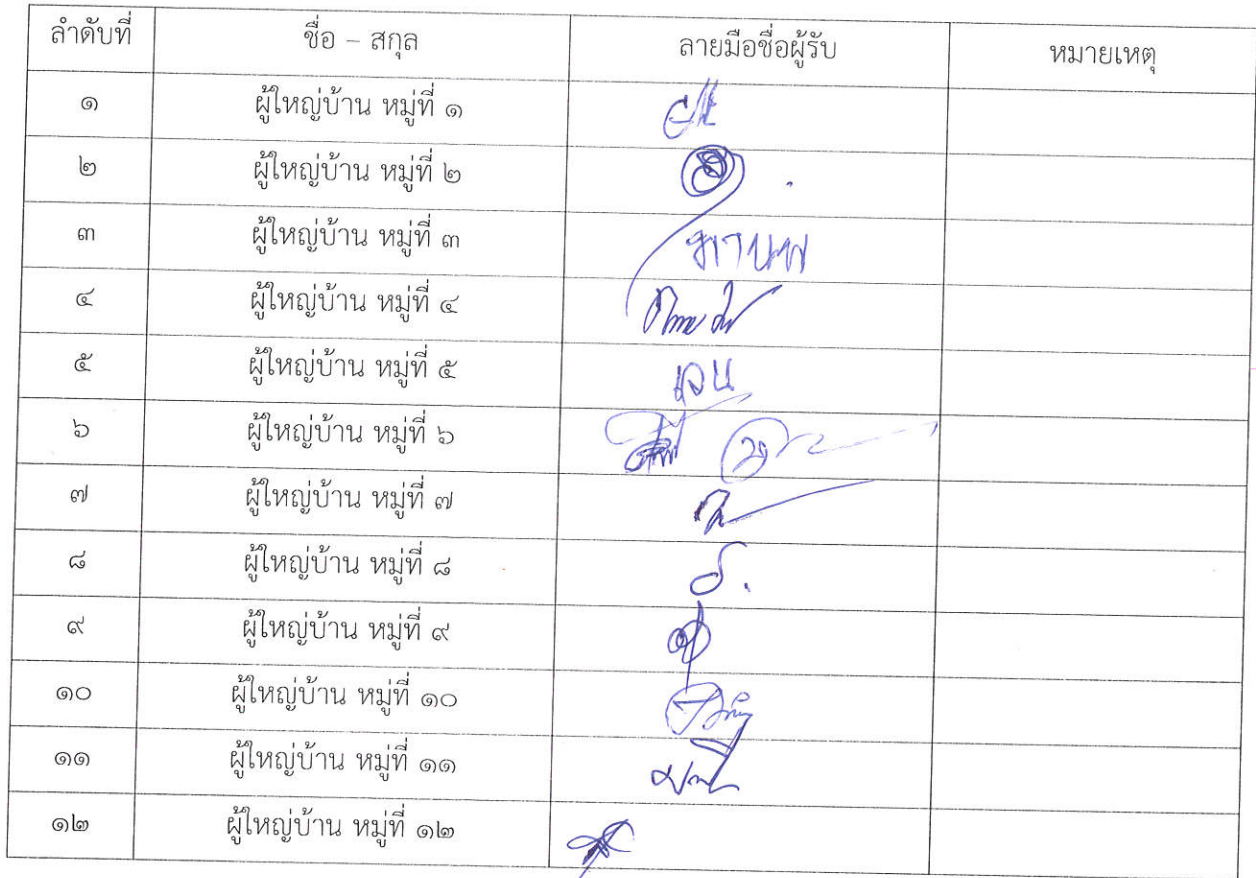 ลำดับที่ ชื่อ – สกุล ลายมือชื่อผู้รับ หมายเหตุ
๑ ผู้ใหญ่บ้าน หมู่ที่ ๑
๒ ผู้ใหญ่บ้าน หมู่ที่ ๒
๓ ผู้ใหญ่บ้าน หมู่ที่ ๓ มานพ
๔ ผู้ใหญ่บ้าน หมู่ที่ ๔
๕ ผู้ใหญ่บ้าน หมู่ที่ ๕
๖ ผู้ใหญ่บ้าน หมู่ที่ ๖
๗ ผู้ใหญ่บ้าน หมู่ที่ ๗
๘ ผู้ใหญ่บ้าน หมู่ที่ ๘
๙ ผู้ใหญ่บ้าน หมู่ที่ ๙
๑๐ ผู้ใหญ่บ้าน หมู่ที่ ๑๐
๑๑ ผู้ใหญ่บ้าน หมู่ที่ ๑๑
๑๒ ผู้ใหญ่บ้าน หมู่ที่ ๑๒